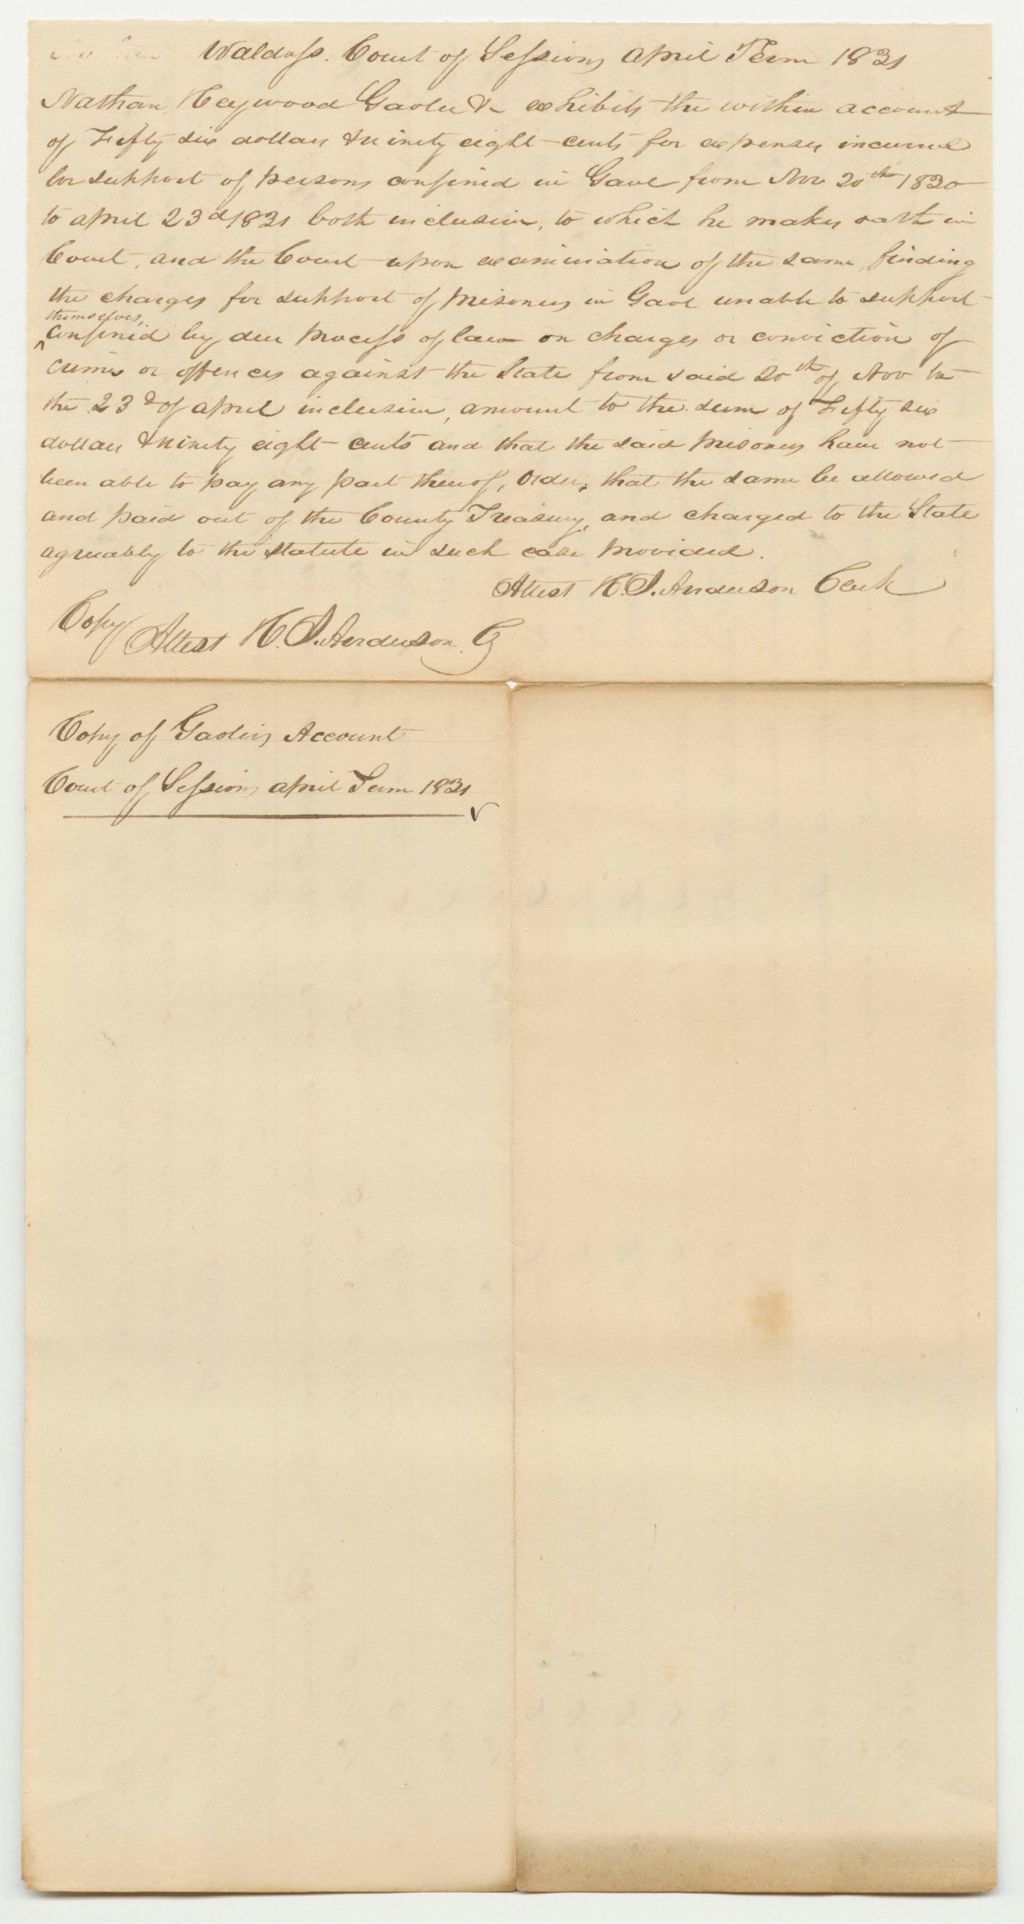 Waldo ss. Court of Sessions April Term 1831
Nathan Heywood Gaoler &c exhibits the within account
of Fifty six dollars & ninety eight cents for expenses incurred
for support of persons confined in Gaol from Nov 20th 1830
to april 23d 1831 both inclusive, to which he makes oath in
Court, and the Court upon examination of the same, finding
the charges for support of prisoners in Gaol unable to support
themselves,
^confined by due process of law on charges or conviction of
crimes or offences against the State from said 20th of Nov to
the 23d of April inclusive, amount to the sum of Fifty six
dollars & ninety eight cents and that the said prisoners have not
been able to pay any part thereof, Order, that the same be allowed
and paid out of the County Treasury, and charged to the State
agreeably to the statute in such case provided.
Attest H. J. Anderson Clerk
Copy Attest H. J. Anderson Ck
Copy of Gaolers Account
Court of Sessions April Term 1831